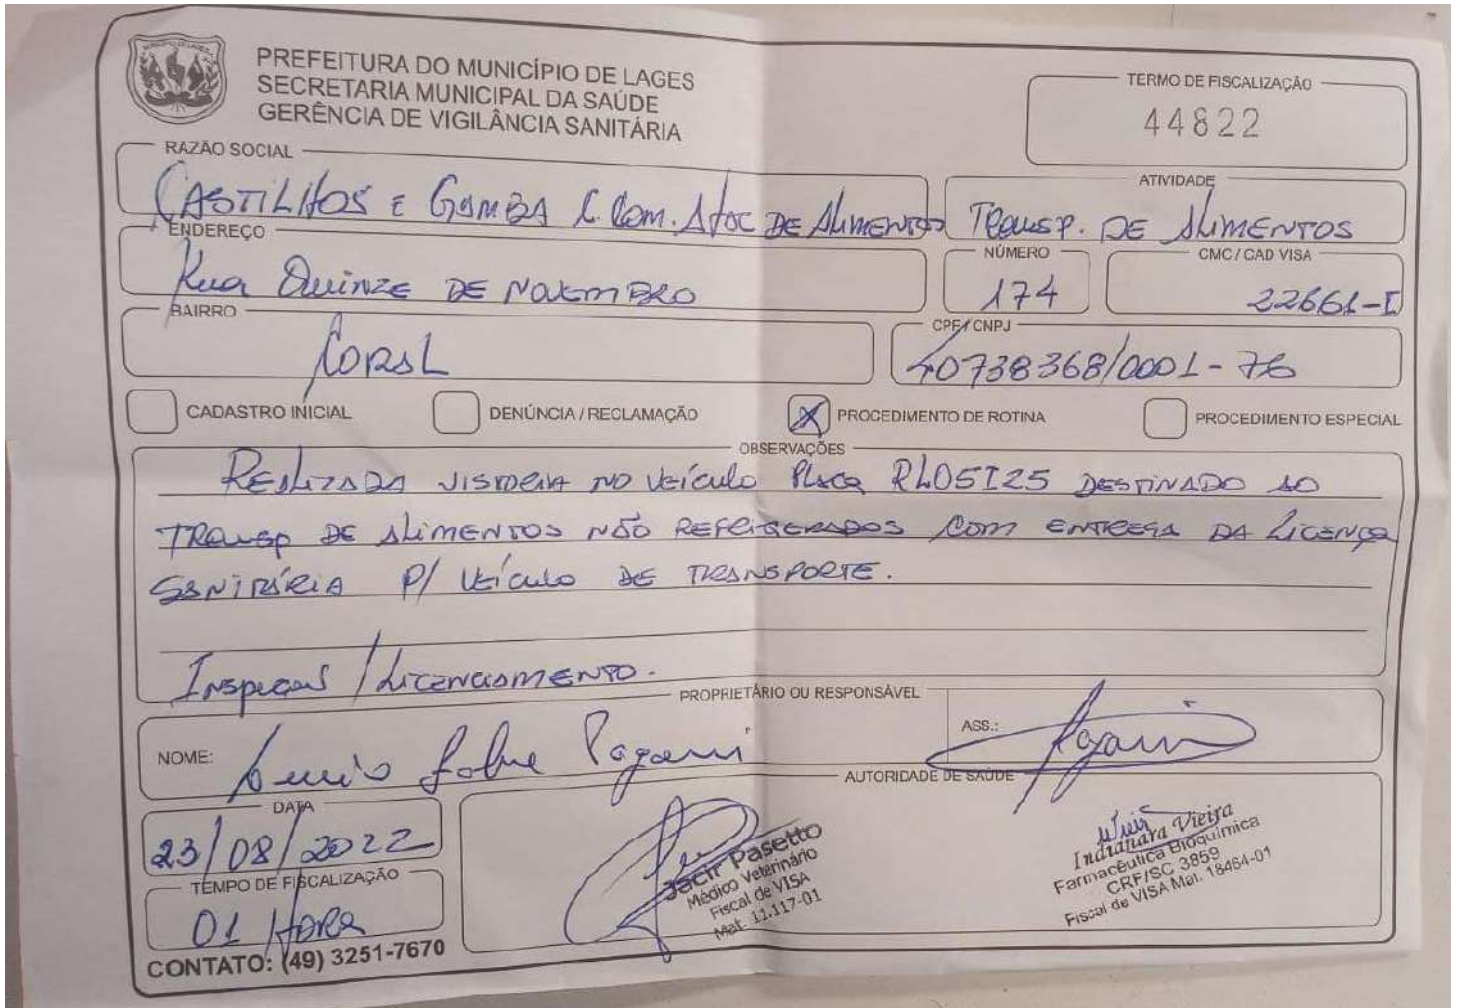 PREFEITURA DO MUNICÍPIO DE LAGES
SECRETARIA MUNICIPAL DA SAÚDE
GERÊNCIA DE VIGILÂNCIA SANITÁRIA
TERMO DE FISCALIZAÇÃO
44822
RAZÃO SOCIAL
CASTILHOS E GAMBA C. Com. Atac DE ALIMENTOS
ATIVIDADE
TRANSP. DE ALIMENTOS
ENDEREÇO
Rua QUINZE DE NOVEMBRO
NÚMERO
174
CMC / CAD VISA
22661-I
BAIRRO
CORAL
CPF / CNPJ
40738368/0001-76
CADASTRO INICIAL
DENÚNCIA / RECLAMAÇÃO
X PROCEDIMENTO DE ROTINA
PROCEDIMENTO ESPECIAL
OBSERVAÇÕES
REALIZADA VISTORIA NO VEÍCULO PLACA RLO5I25 DESTINADO AO
TRANSP DE ALIMENTOS NÃO REFRIGERADOS COM ENTREGA DA LICENÇA
SANITÁRIA P/ VEÍCULO DE TRANSPORTE.
INSPEÇÃO / LICENCIAMENTO.
PROPRIETÁRIO OU RESPONSÁVEL
NOME:
Pagani
ASS.:
Pagani
AUTORIDADE DE SAÚDE
DATA
23/08/2022
TEMPO DE FISCALIZAÇÃO
01 HORA
Jacir Pasetto
Médico Veterinário
Fiscal de VISA
Mat. 11.117-01
Indianara Vieira
Farmacêutica Bioquímica
CRF/SC 3859
Fiscal de VISA Mat. 18464-01
CONTATO: (49) 3251-7670